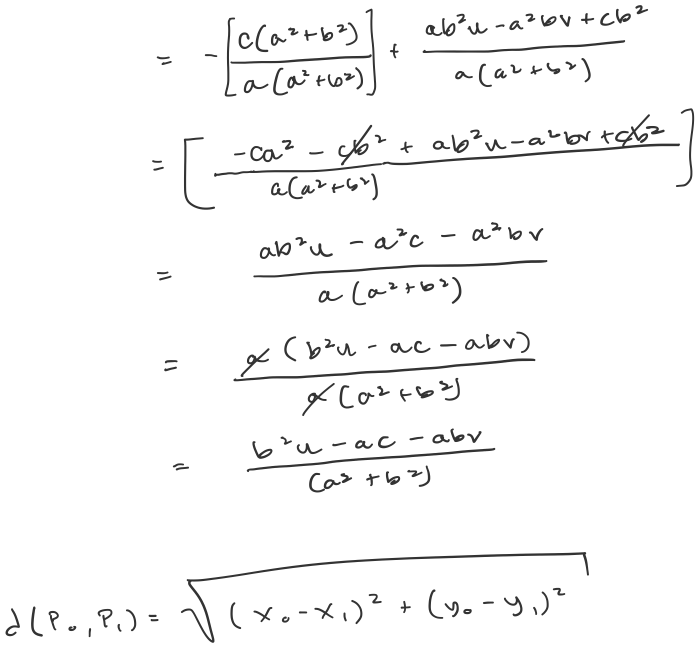 = -[c(a²+b²)/a(a²+b²)] + (ab²u-a²bv+cb²)/a(a²+b²)
= [(-ca² - cb² + ab²u-a²bv+cb²)/a(a²+b²)]
= (ab²u - a²c - a²bv)/a(a²+b²)
= a(b²u - ac - abv)/a(a²+b²)
= (b²u - ac - abv)/(a²+b²)
d(P₀,P₁) = √((x₀-x₁)² + (y₀-y₁)²)